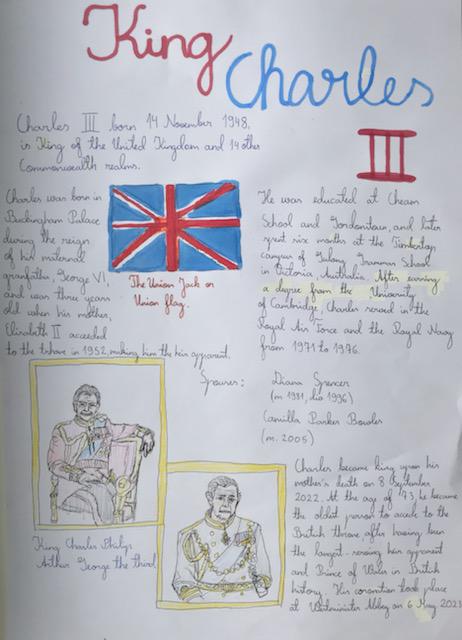 King
Charles
III
Charles III born 14 November 1948,
is King of the United Kingdom and 14 other
Commonwealth realms.
Charles was born in
Buckingham Palace
during the reign
of his maternal
grandfather, George VI,
and was three years
old when his mother,
Elizabeth II acceded
to the throne in 1952, making him the heir apparent.
The Union Jack or
Union flag.
He was educated at Cheam
School and Gordonstoun, and later
spent six months at the Timbertop
campus of Geelong Grammar School
in Victoria, Australia. After earning
a degree from the University
of Cambridge, Charles served in the
Royal Air Force and the Royal Navy
from 1971 to 1976.
Spouses:
Diana Spencer
(m 1981, div 1996)
Camilla Parker Bowles
(m. 2005)
King Charles Philip
Arthur George the third
Charles became king upon his
mother's death on 8 September
2022. At the age of 73, he became
the oldest person to accede to the
British throne after having been
the longest-serving heir apparent
and Prince of Wales in British
history. His coronation took place
at Westminster Abbey on 6 May 2023